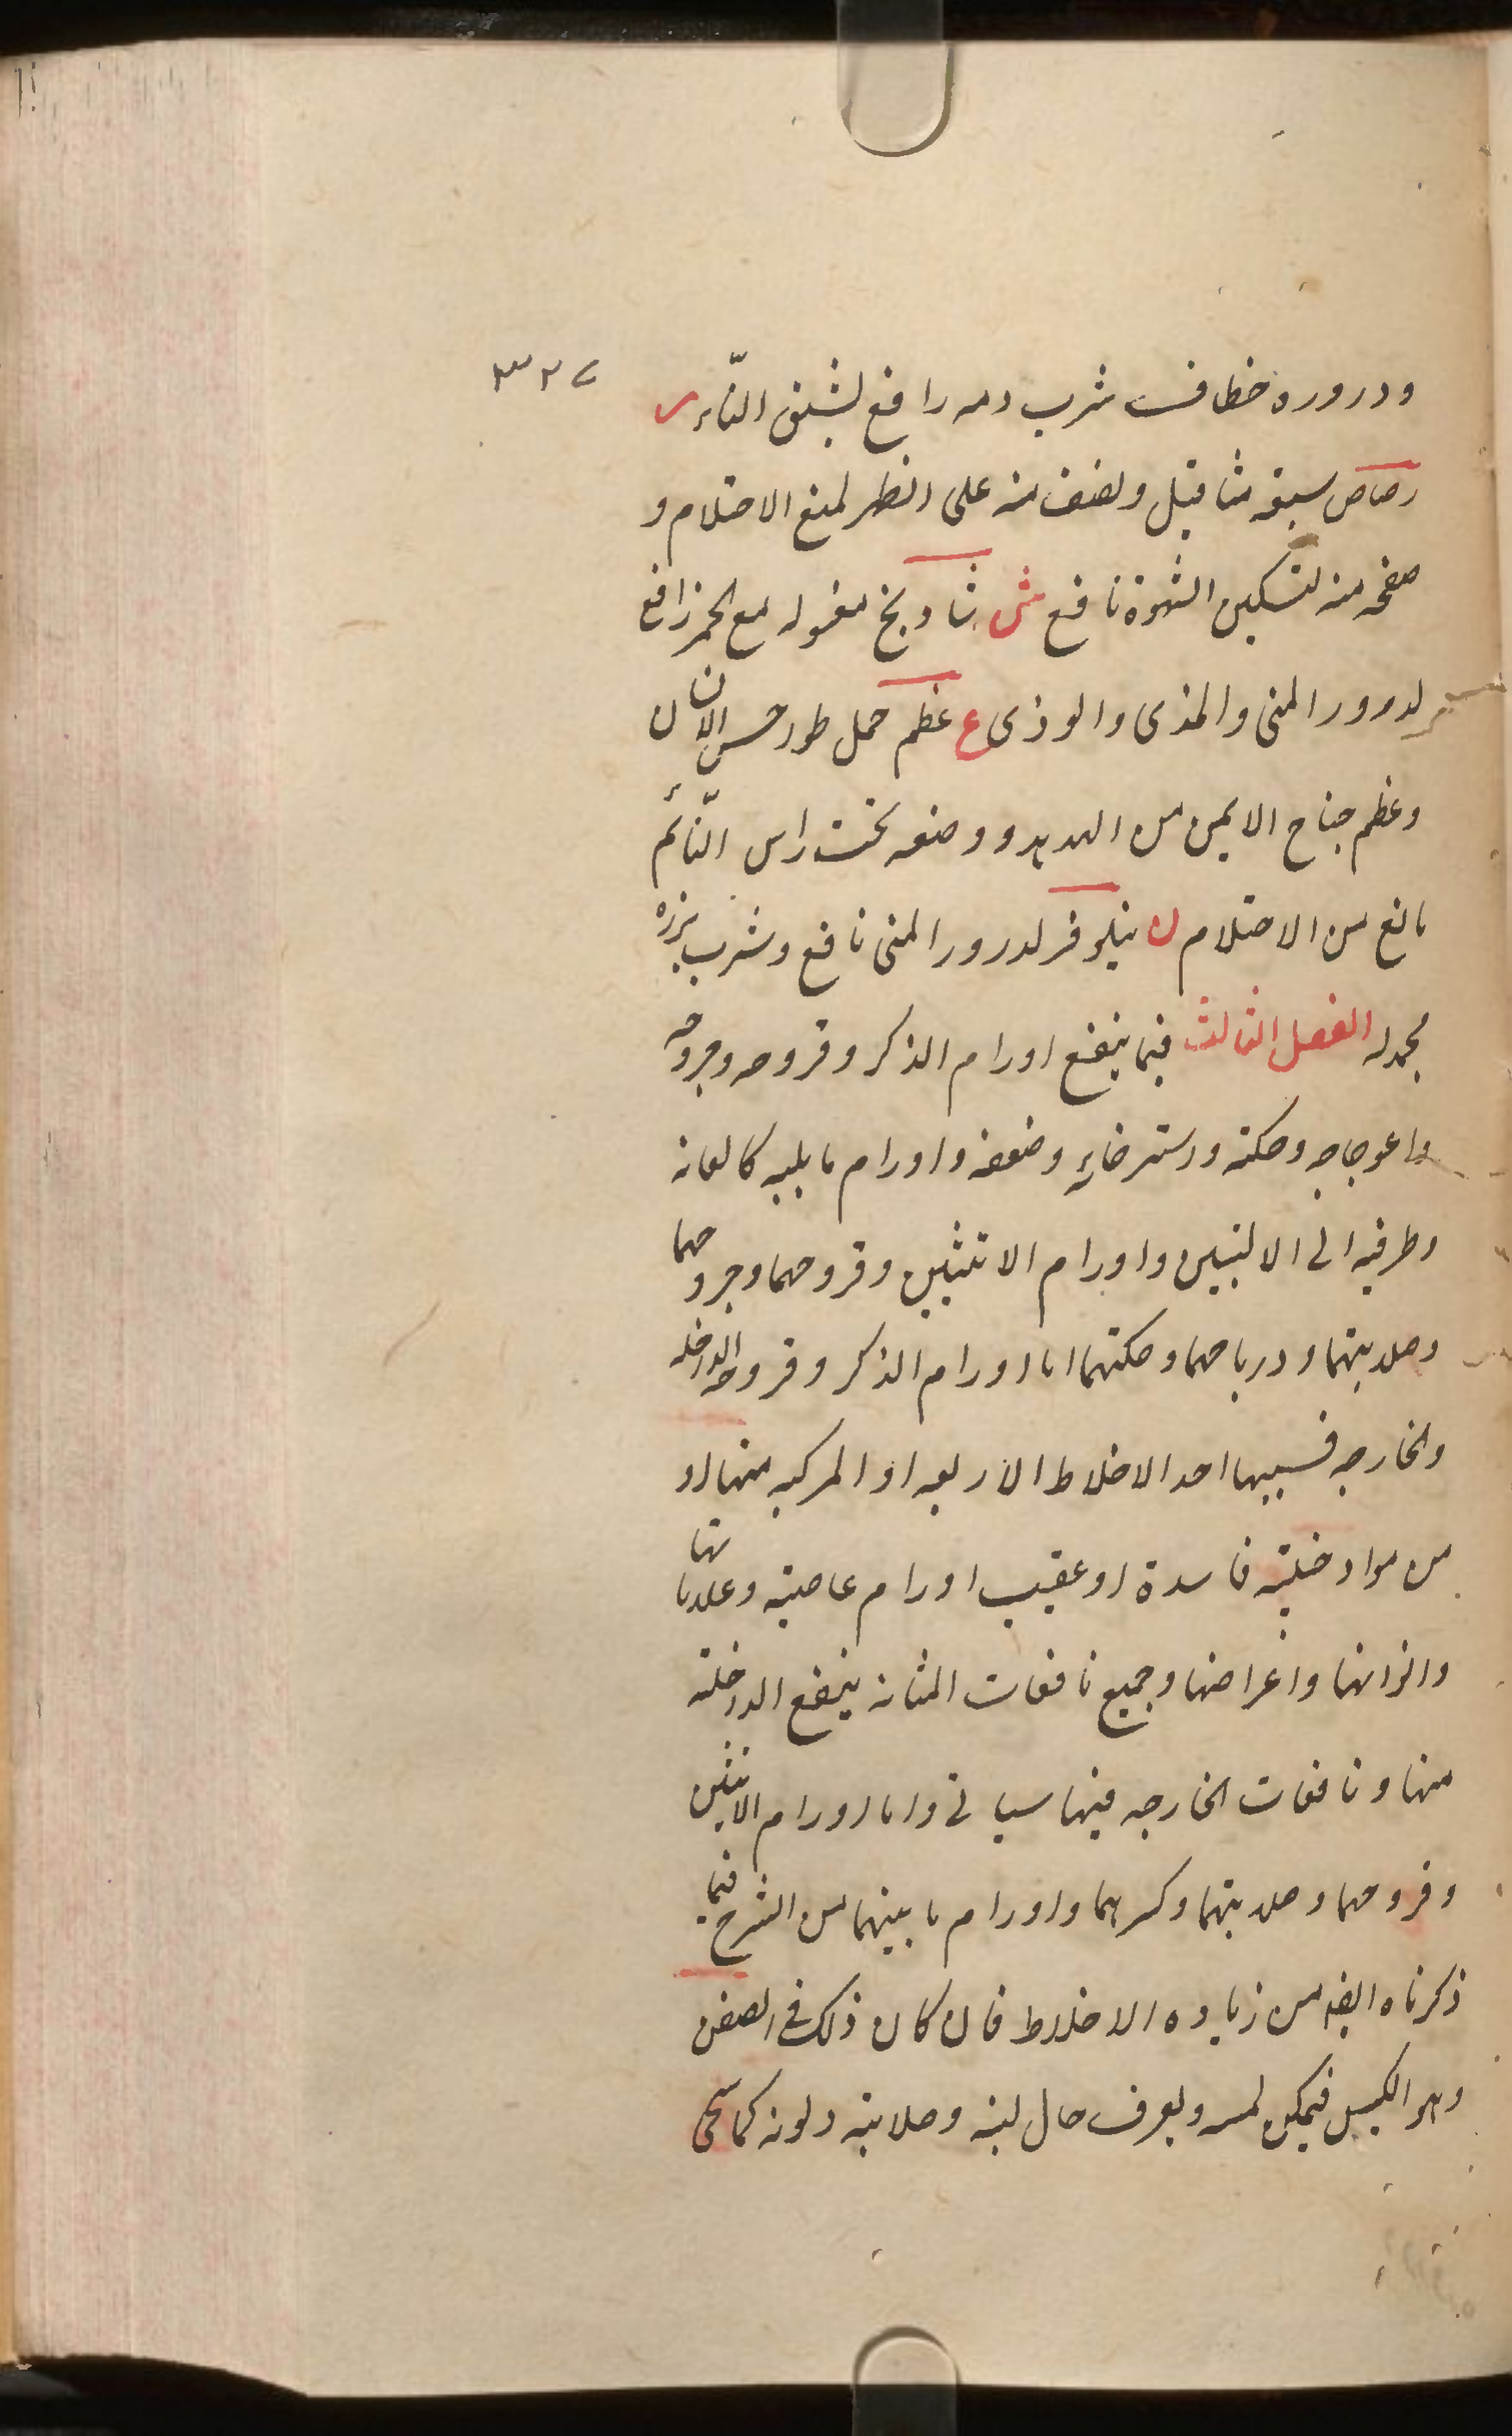 ٣٢٧
ودروره خطاف شرب دمه رافع لشبق النّاء ر
رصاص سبعة مثاقيل ونصف منه على الظهر لمنع الاحتلام و
صفحه منه لتسكين الشهوة نافع ش شادنج مغسوله مع الخمر نافع
لدرور المنى والمذى والوذى ع عظم حمل طور حسن الانسان
وعظم جناح الايمن من الهدهد ووضعه تحت راس النّائم
مانع من الاحتلام ن نيلوفر لدرور المنى نافع وشرب بزره
مجمد له الفصل الثالث فيما ينفع اورام الذكر وقروحه وجروحه
واعوجاجه وحكته واسترخايه وضعفه واورام ما يليه كالعانه
وطرفيه الى الاليتين واورام الانثيين وقروحهما وجروحهما
وصلابتهما ورياحهما وحكتهما اما اورام الذكر وقروحه الداخله
والخارجه فسببها احد الاخلاط الاربعه او المركبه منها او
من مواد خلتيه فاسدة او عقيب اورام عاصيته وعلاماتها
والزانها واعراضها وجميع نافعات المثانه ينفع الداخلته
منها و نافعات الخارجه فيها سياتى واما اورام الانثيين
وقروحهما وصلابتهما وكبرهما واورام ما بينهما من الشرح فيما
ذكرناه ايضا من زياده الاخلاط فان كان ذلك فى الصفن
وهو الكيس فيمكن لمسه ويعرف حال لينه وصلابته ولونه كما سيجى